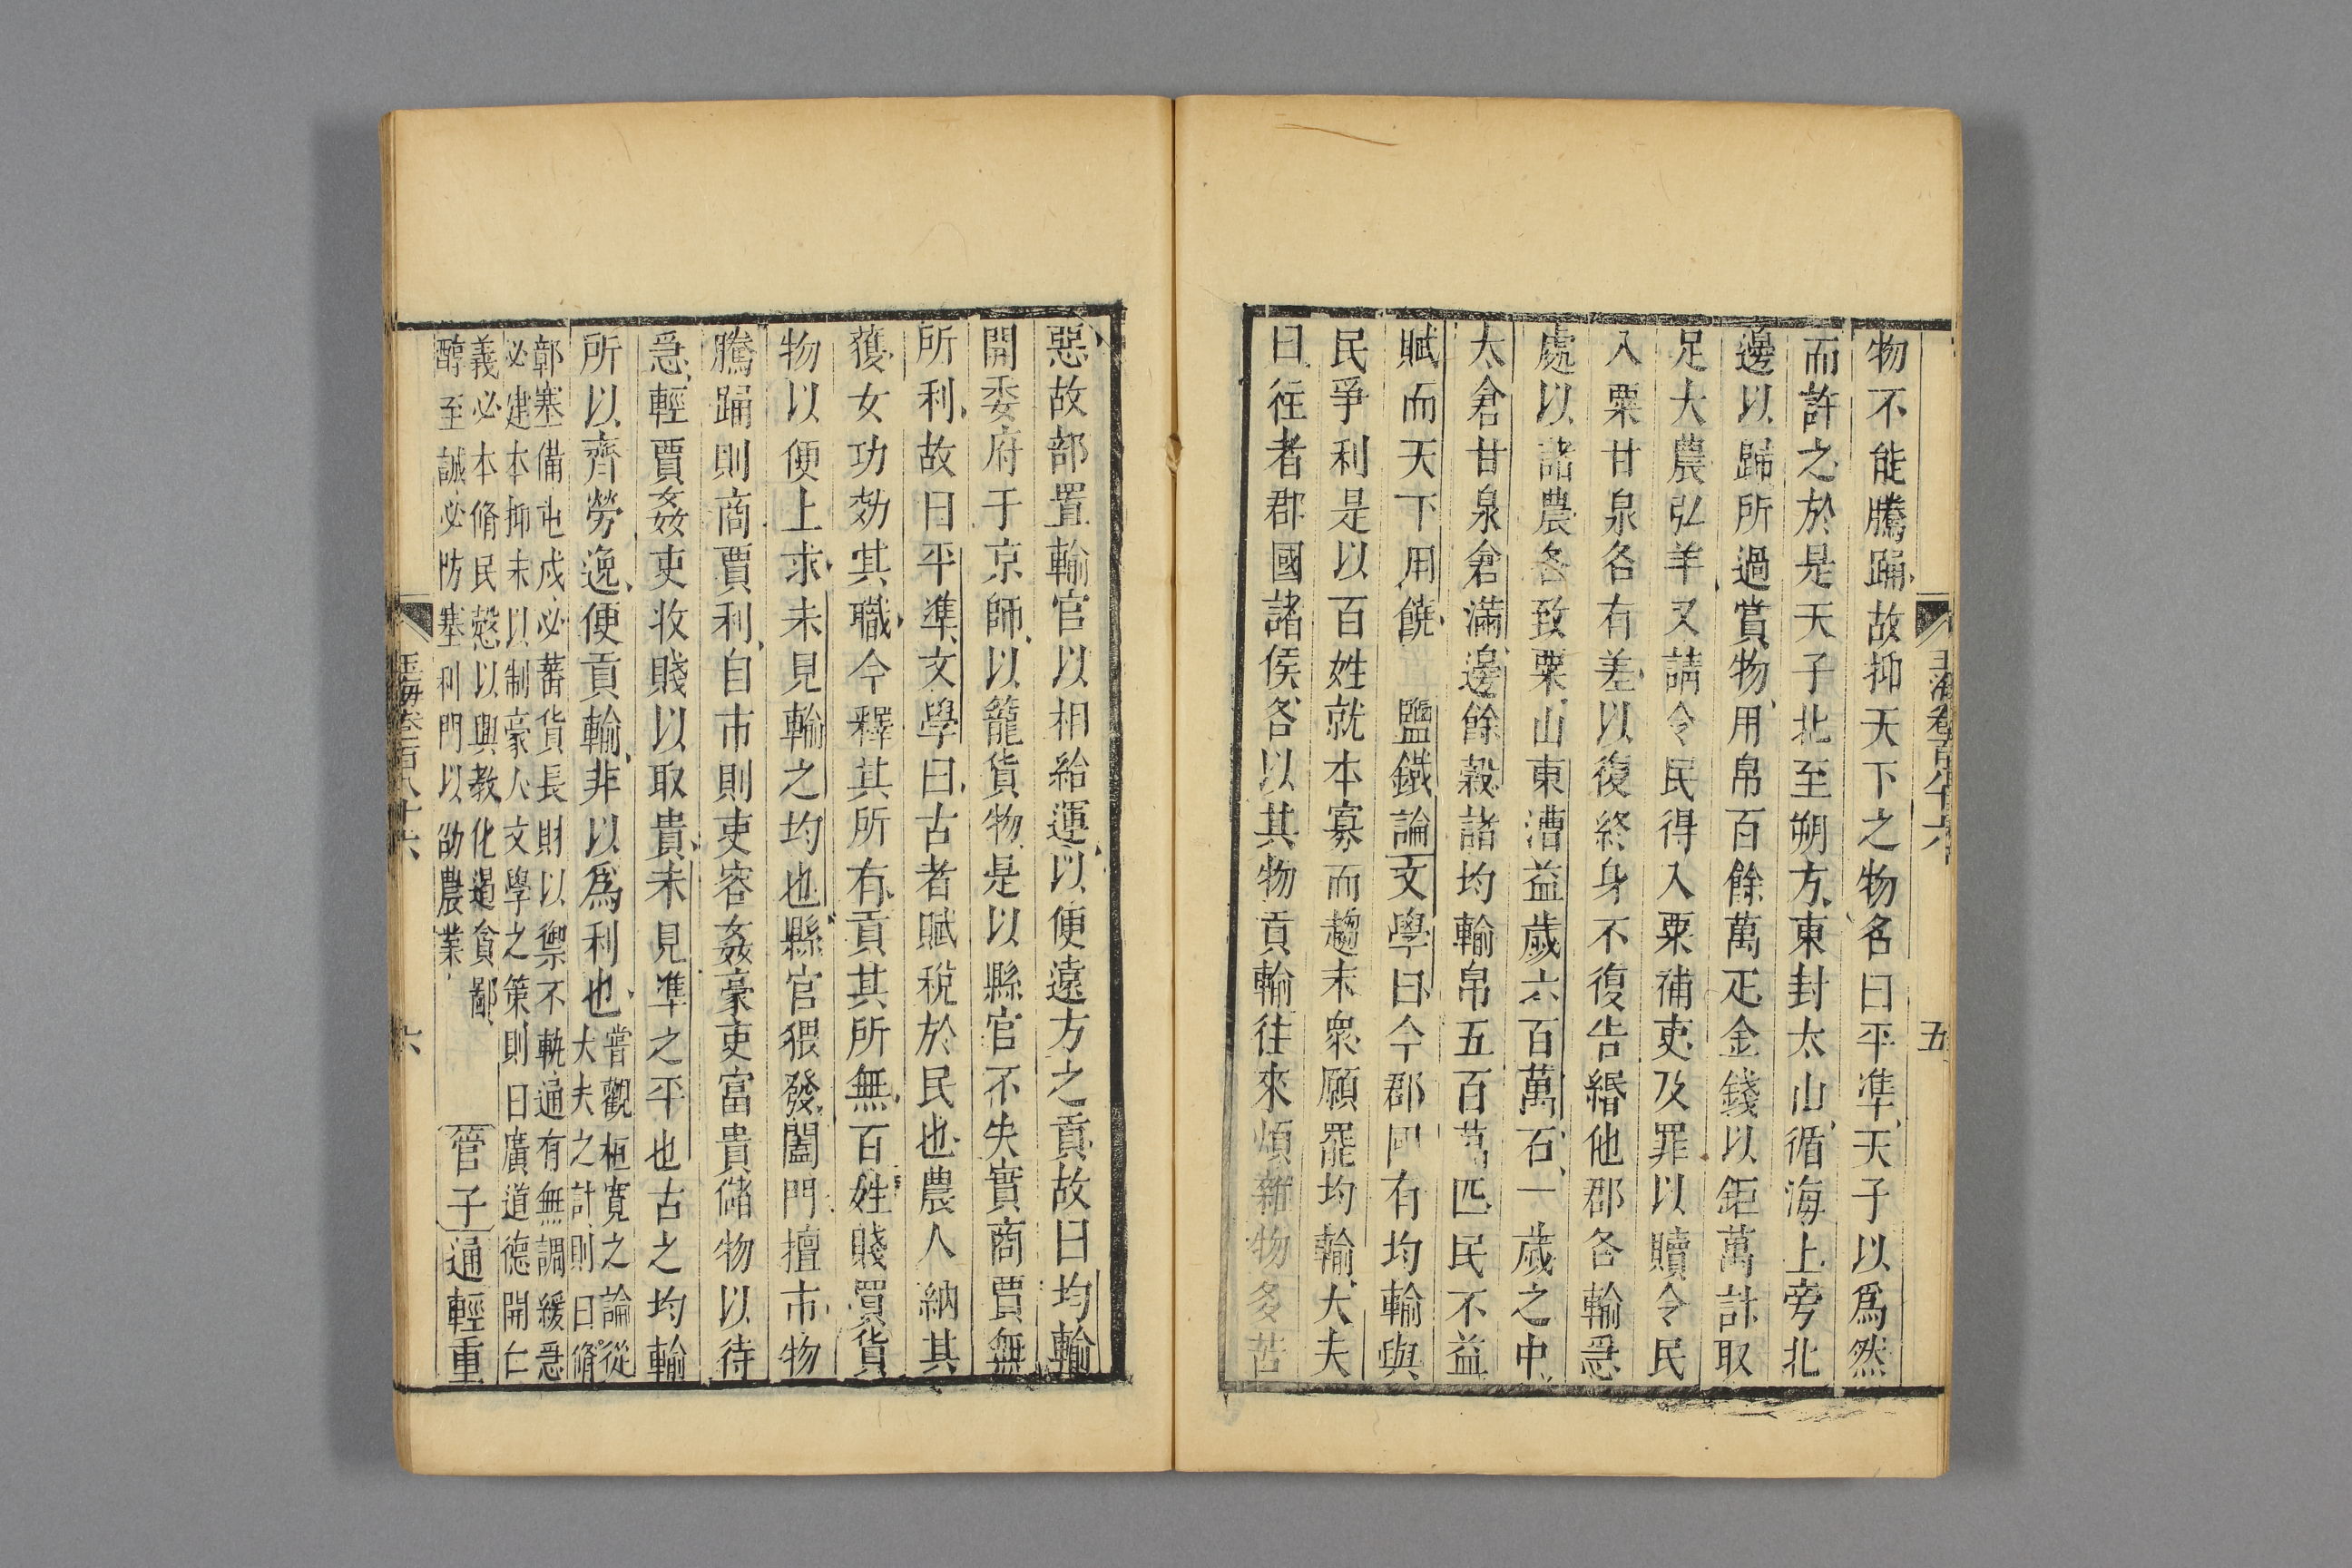 玉海卷一百八十六 五
物不能騰踊故抑天下之物名曰平準天子以爲然
而許之於是天子北至朔方東封太山循海上旁北
邊以歸所過賞物用帛百餘萬疋金錢以鉅萬計取
足大農弘羊又請令民得入粟補吏及罪以贖令民
入粟甘泉各有差以復終身不復告緡他郡各輸急
處以諸農各致粟山東漕益歲六百萬石一歲之中
太倉甘泉倉滿邊餘穀諸均輸帛五百萬匹民不益
賦而天下用饒 鹽鐵論文學曰今郡國有均輸與
民爭利是以百姓就本寡而趨末衆願罷均輸大夫
曰往者郡國諸侯各以其物貢輸往來煩雜物多苦
惡故部置輸官以相給運以便遠方之貢故曰均輸
開委府于京師以籠貨物是以縣官不失實商賈無
所利故曰平準文學曰古者賦稅於民也農人納其
獲女功効其職今釋其所有貢其所無百姓賤買貨
物以便上求未見輸之均也縣官猥發闔門擅市物
騰踊則商賈利自市則吏容姦豪吏富貴儲物以待
急輕賈姦吏收賤以取貴未見準之平也古之均輸
所以齊勞逸便貢輸非以爲利也 嘗觀桓寬之論從
大夫之計則曰脩
鄣塞備屯戍必蕃貨長財以禦不軌通有無調緩急
必建本抑末以制豪人文學之策則曰廣道德開仁
義必本脩民慤以興教化遏貧鄙
醇至誠必防塞利門以劭農業 管子通輕重
玉海卷一百八十六 六